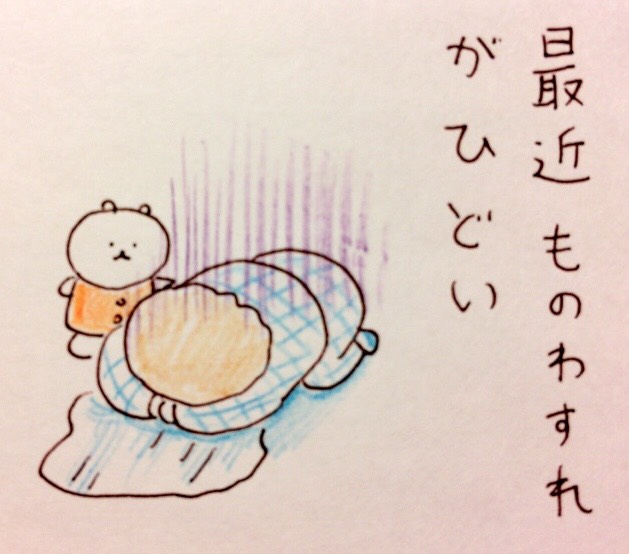 最近ものわすれ
がひどい